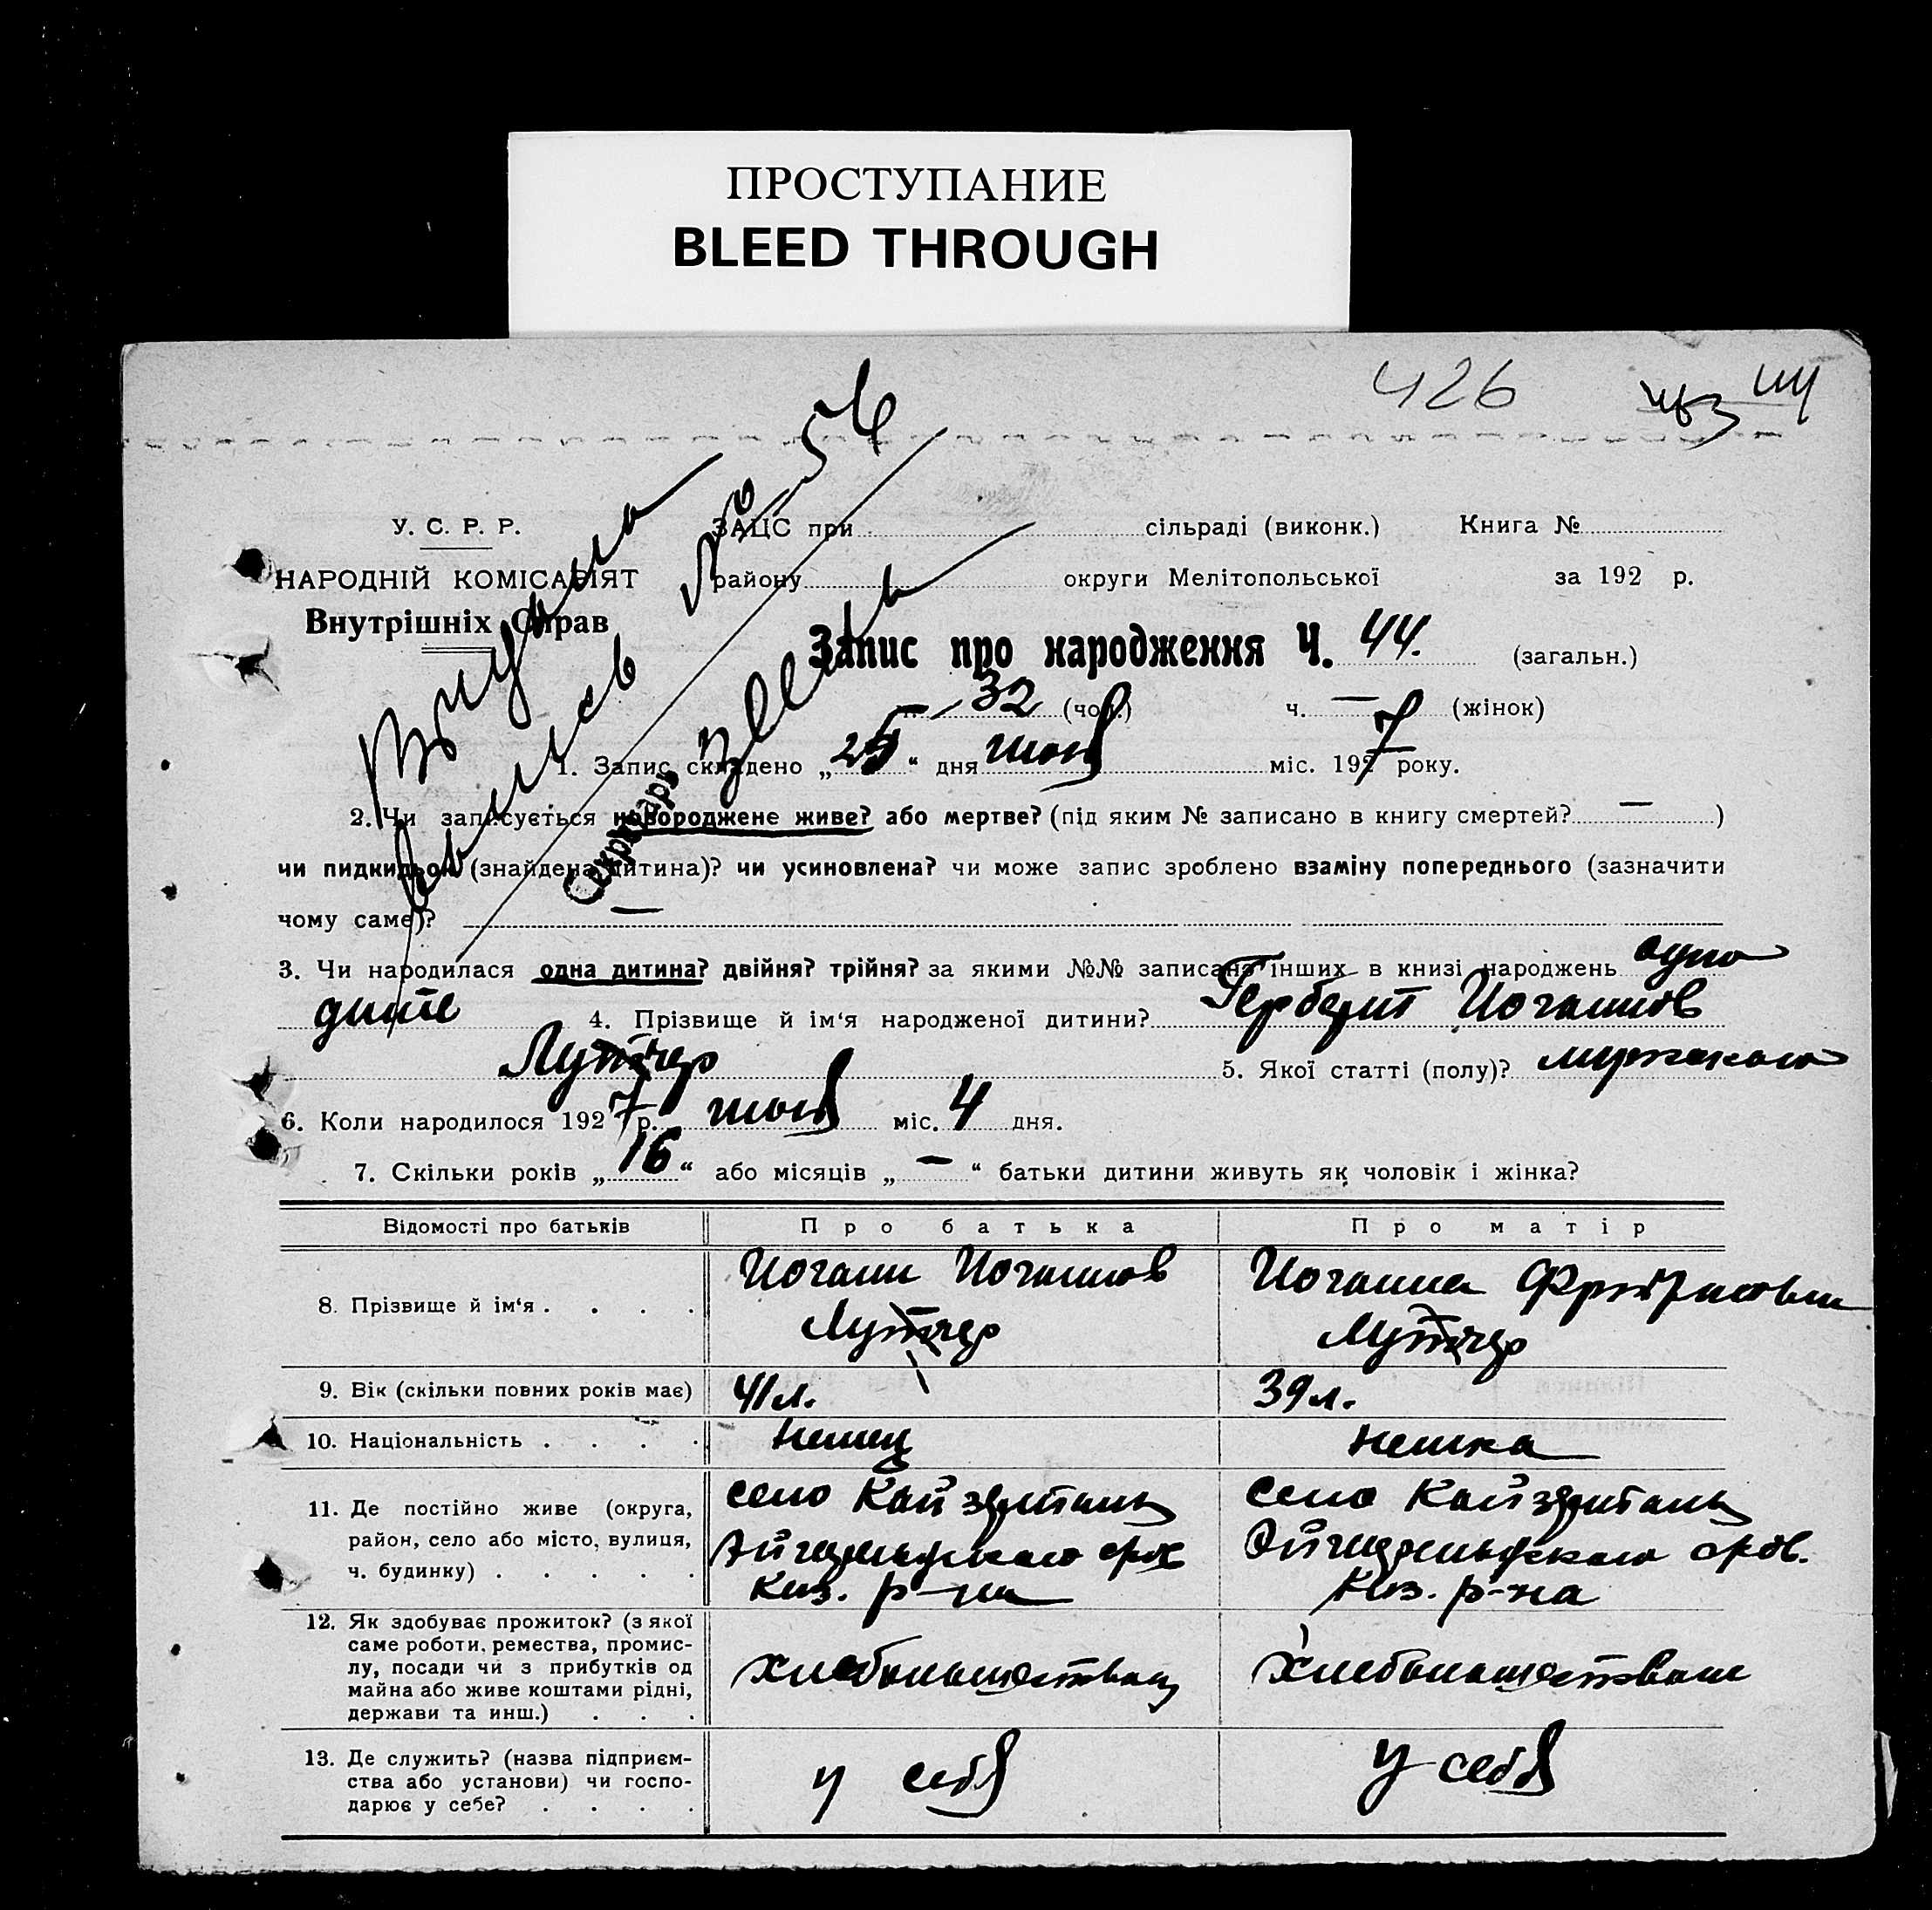 ПРОСТУПАНИЕ
BLEED THROUGH
426
463
У. С. Р. Р.
НАРОДНІЙ КОМІСАРІЯТ
Внутрішніх Справ
ЗАЦС при сільраді (виконк.) Книга №
району округи Мелітопольської за 192 р.
Выдана
выпись № 56
Секретарь
Запис про народження Ч. 44. (загальн.)
ч. 32 (чол.) ч. — (жінок)
1. Запис складено „25“ дня июля міс. 1927 року.
2. Чи записується новороджене живе? або мертве? (під яким № записано в книгу смертей? — )
чи пидкидьок (знайдена дитина)? чи усиновлена? чи може запис зроблено взаміну попереднього (зазначити
чому саме)? —
3. Чи народилася одна дитина? двійня? трійня? за якими №№ записано інших в книзі народжень одно
дите 4. Прізвище й ім‘я народженої дитини? Герберт Иоганнов
5. Якої статті (полу)? мужского
6. Коли народилося 1927 р. июля міс. 4 дня.
7. Скільки років „16“ або місяців „—“ батьки дитини живуть як чоловік і жінка?
Відомості про батьків Про батька Про матір
8. Прізвище й ім‘я . . . . Иоганн Иоганнов Иоганна
9. Вік (скільки повних років має) 41 л. 39 л.
10. Національність . . . . немец немка
11. Де постійно живе (округа, район, село або місто, вулиця, ч. будинку) . . . . .
село Кайзерталь
р-на
село Кайзерталь
р-на
12. Як здобуває прожиток? (з якої
саме роботи, ремества, промис-
лу, посади чи з прибутків од
майна або живе коштами рідні,
держави та инш.) . . .
хлебопашествоец хлебопашеством
13. Де служить? (назва підприєм-
ства або установи) чи госпо-
дарює у себе? . . . .
у себя у себя